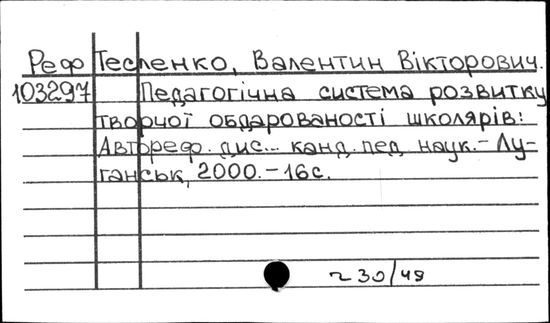 Реф Тесленко, Валентин Вікторович.
103297 Педагогічна система розвитку
творчої обдарованості школярів:
Автореф. дис... канд. пед. наук. - Лу-
ганськ, 2000. - 16с.
~ 30/48